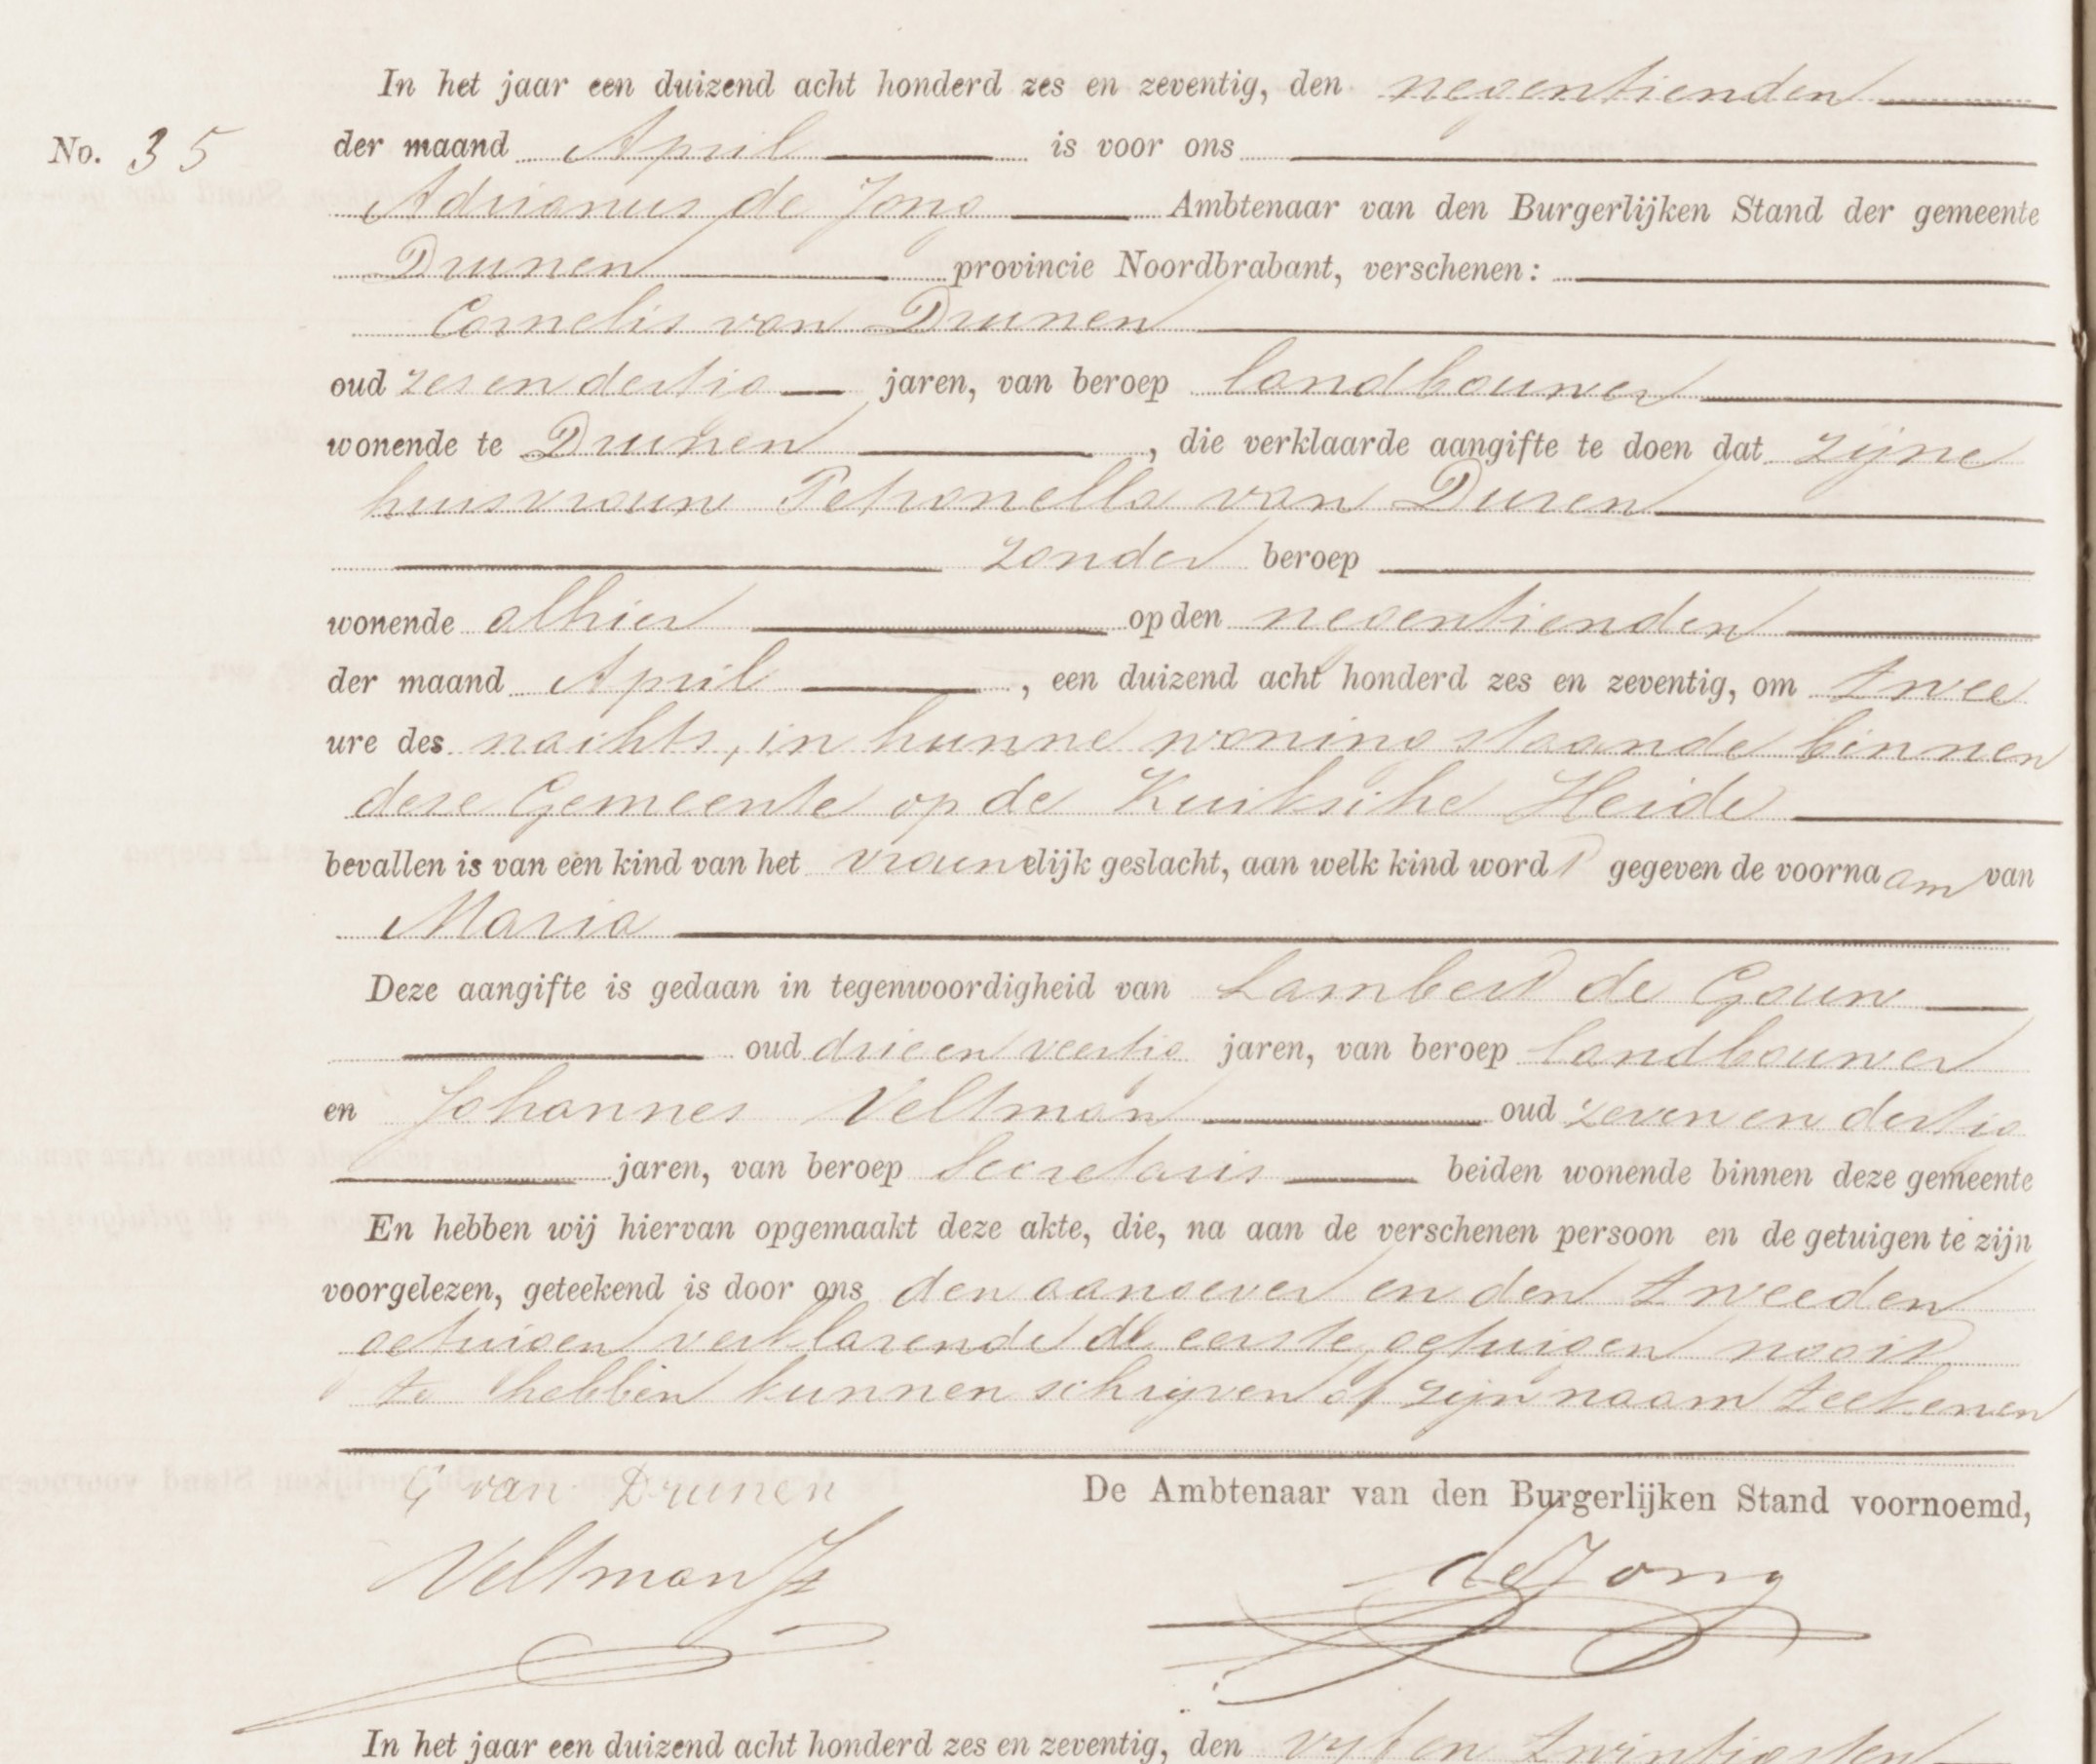 In het jaar een duizend acht honderd zes en zeventig, den negentienden
No. 35 der maand April is voor ons
Adrianus de Jong Ambtenaar van den Burgerlijken Stand der gemeente
Drunen provincie Noordbrabant, verschenen:
Cornelis van Drunen
oud zes en dertig jaren, van beroep landbouwer
wonende te Drunen, die verklaarde aangifte te doen dat zijne
huisvrouw Petronella van Duren
zonder beroep
wonende alhier op den negentienden
der maand April, een duizend acht honderd zes en zeventig, om twee
ure des nachts, in hunne woning staande binnen
deze Gemeente op de Kuiksche Heide
bevallen is van een kind van het vrouwelijk geslacht, aan welk kind wordt gegeven de voornaam van
Maria
Deze aangifte is gedaan in tegenwoordigheid van Lambert de Gouw
oud drie en veertig jaren, van beroep landbouwer
en Johannes Veltman oud zeven en dertig
jaren, van beroep Secretaris beiden wonende binnen deze gemeente
En hebben wij hiervan opgemaakt deze akte, die, na aan de verschenen persoon en de getuigen te zijn
voorgelezen, geteekend is door ons den aangever en den tweeden
getuigen verklarende de eerste getuigen nooit
te hebben kunnen schrijven of zijn naam teekenen
C van Drunen De Ambtenaar van den Burgerlijken Stand voornoemd,
Veltman Jz de Jong
In het jaar een duizend acht honderd zes en zeventig, den vyf en twintigsten